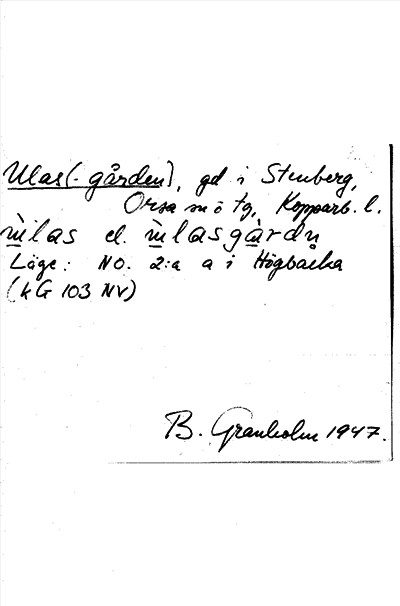 Ulas(-gården), gd i Stenberg,
Orsa sn ö tg, Kopparb. l.
ùlas el. ùlasgàrdn̥
Läge: NO. 2:a a i Högbacka
(kG 103 NV)
B. Granholm 1947.